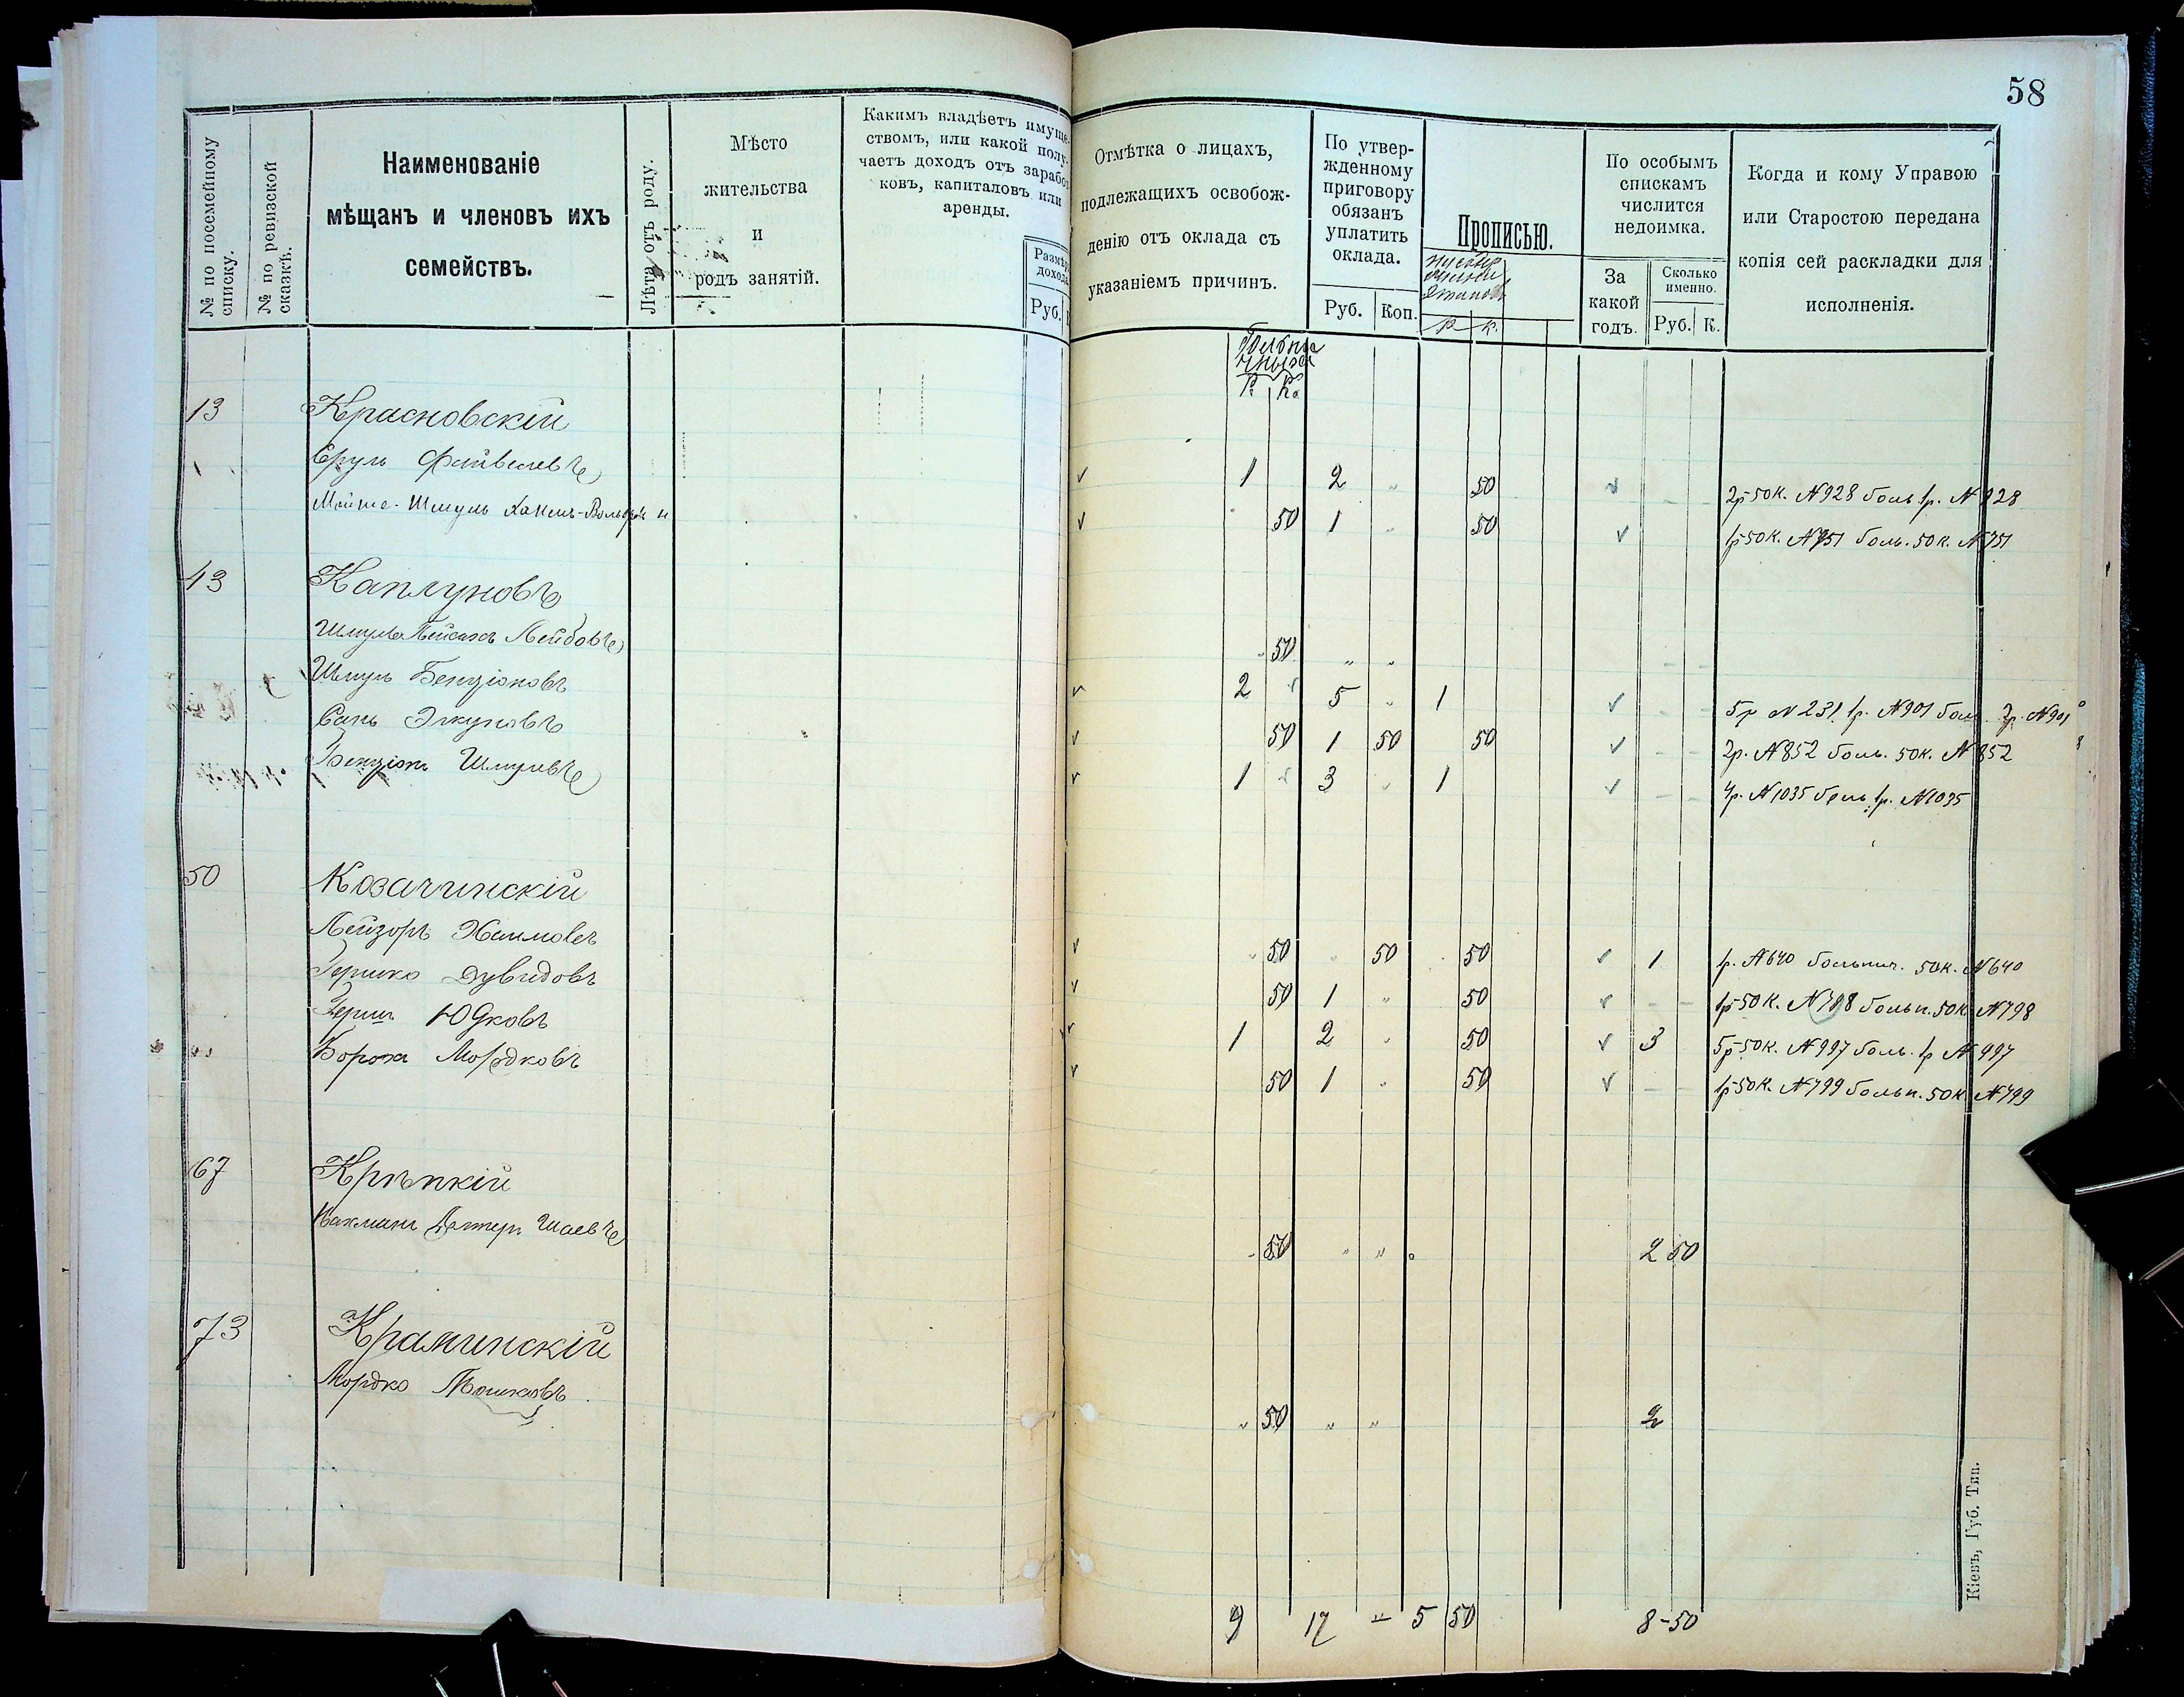 58
№ по посемейному списку.
№ по ревизской сказкѣ.
Наименованіе
мѣщанъ и членовъ ихъ
семействъ.
Лѣта отъ роду.
Мѣсто
жительства
и
родъ занятій.
Какимъ владѣетъ имуще-
ствомъ, или какой полу-
чаетъ доходъ отъ заработ-
ковъ, капиталовъ или
аренды.
Размѣръ
дохода
Руб.
Отмѣтка о лицахъ,
подлежащихъ освобож-
денію отъ оклада съ
указаніемъ причинъ.
По утвер-
жденному
приговору
обязанъ
уплатить
оклада.
Руб. Коп.
Прописью.
Р К.
По особымъ
спискамъ
числится
недоимка.
За
какой
годъ.
Сколько
именно.
Руб. К.
Когда и кому Управою
или Старостою передана
копія сей раскладки для
исполненія.
Р. Ко
13 Красновскій
Сруль Файвелевъ 1 2 " 50 2р 50к. № 928 боль 1р. № 928
Шмуль 50 1 " 50 1р 50к. № 751 боль. 50к. № 751
43 Каплуновъ
Шмуль Пейсахъ Лейбовъ " 50 " "
Шмуль Бенціоновъ 2 5 " 1 5р № 231. 1р. № 901 боль. 2р. № 901
50 1 50 50 2р. № 852 боль. 50к. № 852
Бенціонъ Шмулевъ 1 3 " 1 4р. № 1035 боль. 1р. № 1035
50 Козачинскій
Лейзоръ Хаимовъ " 50 " 50 50 1 1р. № 640 больнич. 50к. № 640
Гершко Дувидовъ 50 1 " 50 1р 50к. № 798 больн. 50к № 798
Герш Юдковъ 1 2 " 50 3 5р 50к. № 997 боль. 1р № 997
Борохъ Мордковъ 50 1 " 50 1р 50к. № 799 больн. 50к № 799
67 Крѣпкій
Шаевъ " 50 " " 2 50
73 Краминскій
Мордко Мошковъ " 50 " " 2
9 17 " 5 50 8-50
Кіевъ, Губ. Тип.